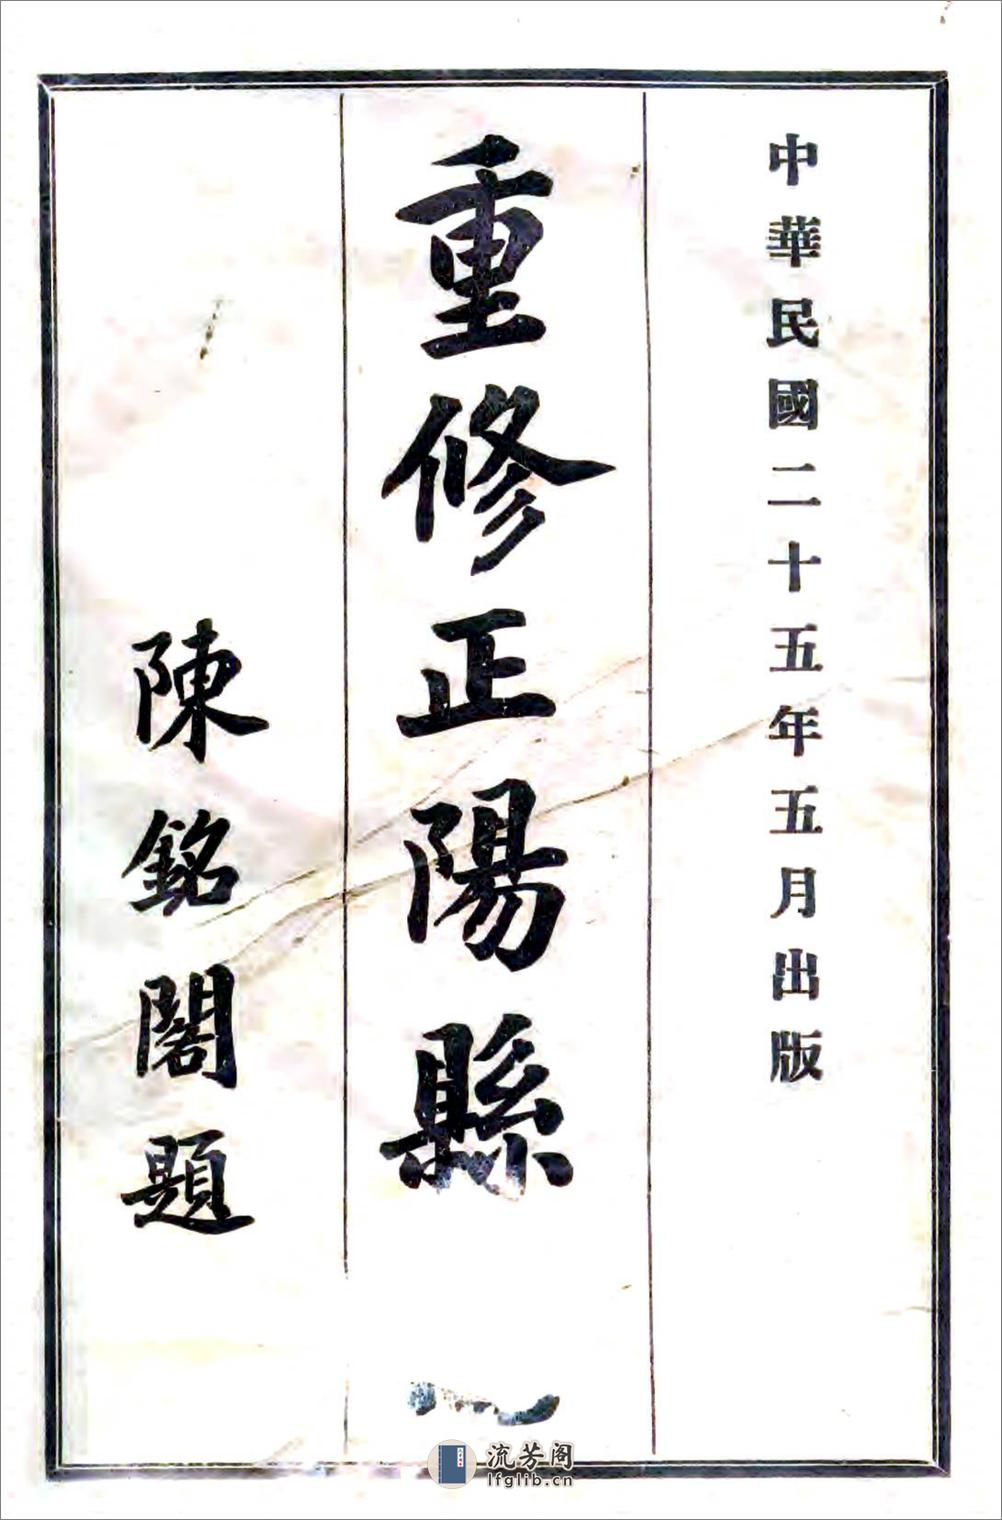 中華民國二十五年五月出版
重修正陽縣
陳銘閣題
流芳阁
lfglib.cn